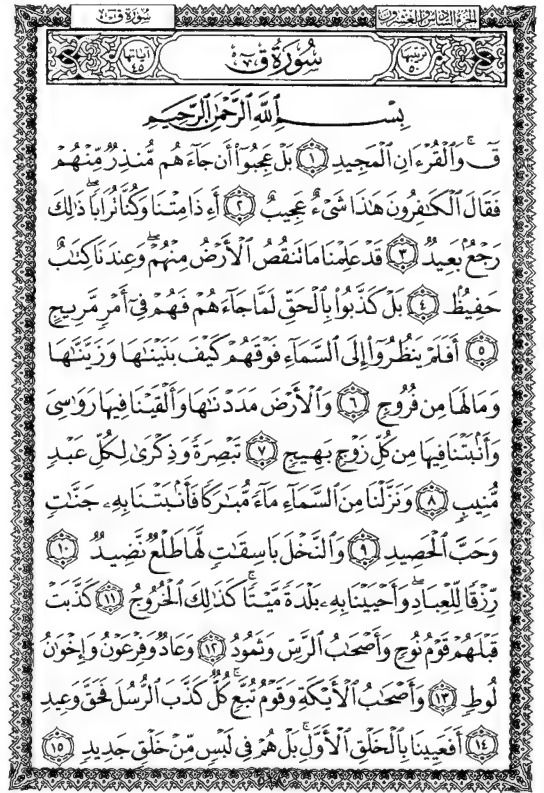 سُورَةُ قٓ الجُزْءُ السَّادِسُ وَالعِشْرُونَ
ترتيبها ٥٠ سُورَةُ قٓ آياتها ٤٥
بِسْمِ ٱللَّهِ ٱلرَّحْمَٰنِ ٱلرَّحِيمِ
قٓۚ وَٱلْقُرْءَانِ ٱلْمَجِيدِ ١ بَلْ عَجِبُوٓا۟ أَن جَآءَهُم مُّنذِرٌ مِّنْهُمْ
فَقَالَ ٱلْكَٰفِرُونَ هَٰذَا شَىْءٌ عَجِيبٌ ٢ أَءِذَا مِتْنَا وَكُنَّا تُرَابًاۖ ذَٰلِكَ
رَجْعٌۢ بَعِيدٌ ٣ قَدْ عَلِمْنَا مَا تَنقُصُ ٱلْأَرْضُ مِنْهُمْۖ وَعِندَنَا كِتَٰبٌ
حَفِيظٌۢ ٤ بَلْ كَذَّبُوا۟ بِٱلْحَقِّ لَمَّا جَآءَهُمْ فَهُمْ فِىٓ أَمْرٍ مَّرِيجٍ
٥ أَفَلَمْ يَنظُرُوٓا۟ إِلَى ٱلسَّمَآءِ فَوْقَهُمْ كَيْفَ بَنَيْنَٰهَا وَزَيَّنَّٰهَا
وَمَا لَهَا مِن فُرُوجٍ ٦ وَٱلْأَرْضَ مَدَدْنَٰهَا وَأَلْقَيْنَا فِيهَا رَوَٰسِىَ
وَأَنۢبَتْنَا فِيهَا مِن كُلِّ زَوْجٍۭ بَهِيجٍ ٧ تَبْصِرَةً وَذِكْرَىٰ لِكُلِّ عَبْدٍ
مُّنِيبٍ ٨ وَنَزَّلْنَا مِنَ ٱلسَّمَآءِ مَآءً مُّبَٰرَكًا فَأَنۢبَتْنَا بِهِۦ جَنَّٰتٍ
وَحَبَّ ٱلْحَصِيدِ ٩ وَٱلنَّخْلَ بَاسِقَٰتٍ لَّهَا طَلْعٌ نَّضِيدٌ ١٠
رِّزْقًا لِّلْعِبَادِۖ وَأَحْيَيْنَا بِهِۦ بَلْدَةً مَّيْتًاۚ كَذَٰلِكَ ٱلْخُرُوجُ ١١ كَذَّبَتْ
قَبْلَهُمْ قَوْمُ نُوحٍ وَأَصْحَٰبُ ٱلرَّسِّ وَثَمُودُ ١٢ وَعَادٌ وَفِرْعَوْنُ وَإِخْوَٰنُ
لُوطٍ ١٣ وَأَصْحَٰبُ ٱلْأَيْكَةِ وَقَوْمُ تُبَّعٍۚ كُلٌّ كَذَّبَ ٱلرُّسُلَ فَحَقَّ وَعِيدِ
١٤ أَفَعَيِينَا بِٱلْخَلْقِ ٱلْأَوَّلِۚ بَلْ هُمْ فِى لَبْسٍ مِّنْ خَلْقٍ جَدِيدٍ ١٥